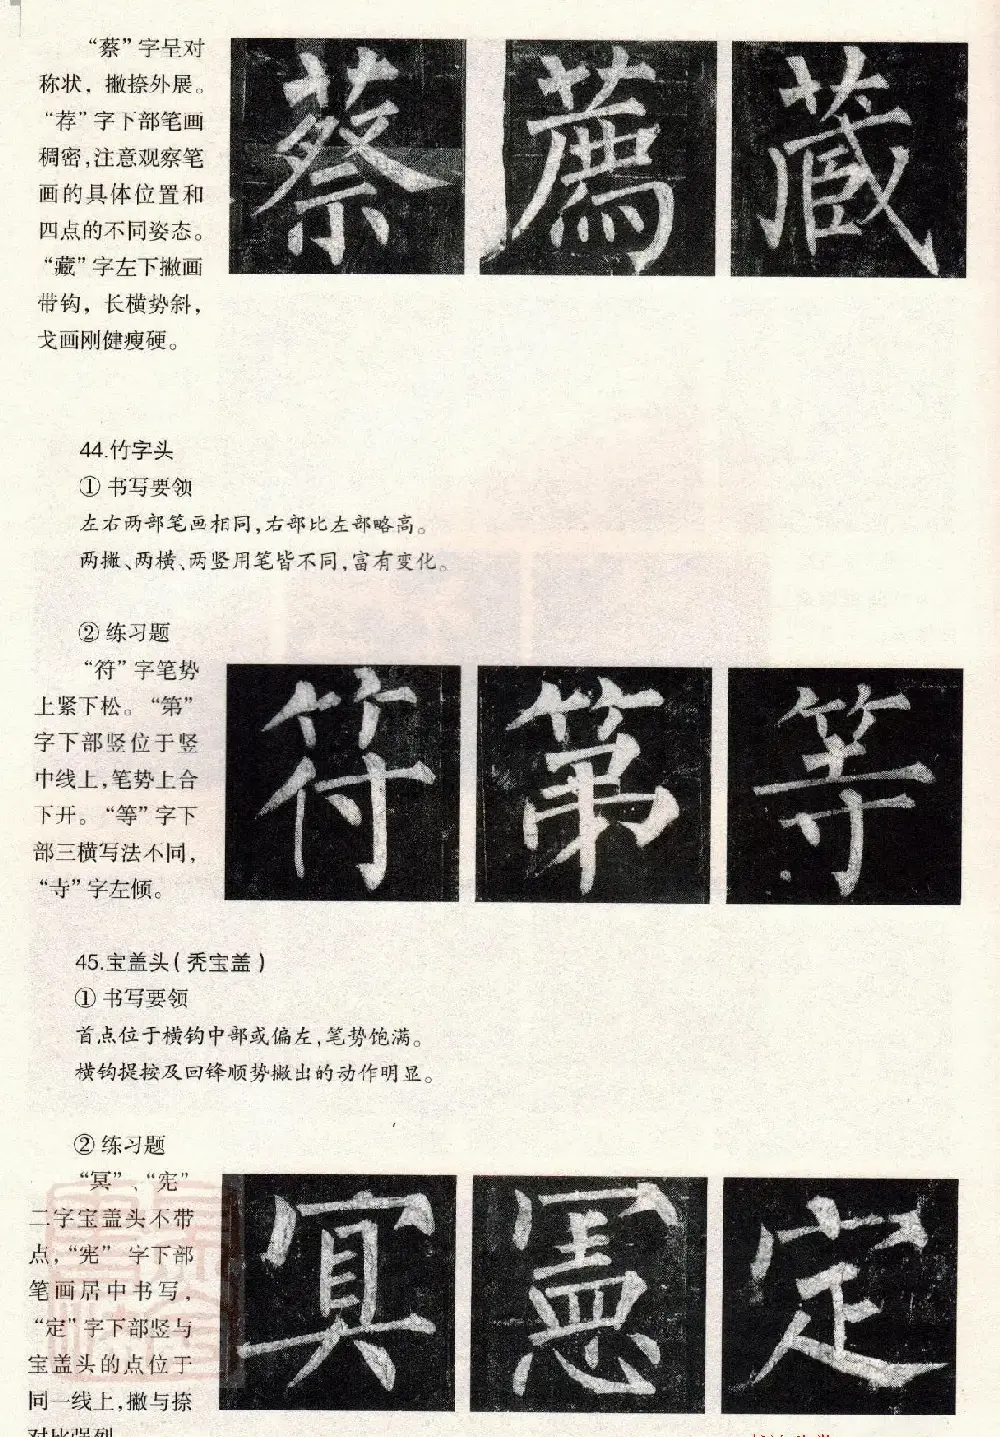 “蔡”字呈对
称状，撇捺外展。
“荐”字下部笔画
稠密,注意观察笔
画的具体位置和
四点的不同姿态。
“藏”字左下撇画
带钩，长横势斜，
戈画刚健瘦硬。
蔡 薦 藏
44.竹字头
① 书写要领
左右两部笔画相同,右部比左部略高。
两撇、两横、两竖用笔皆不同,富有变化。
② 练习题
“符”字笔势
上紧下松。“第”
字下部竖位于竖
中线上,笔势上合
下开。“等”字下
部三横写法不同，
“寺”字左倾。
符 第 等
45.宝盖头(秃宝盖)
① 书写要领
首点位于横钩中部或偏左,笔势饱满。
横钩提按及回锋顺势撇出的动作明显。
② 练习题
“冥”、“宪”
二字宝盖头不带
点,“宪”字下部
笔画居中书写，
“定”字下部竖与
宝盖头的点位于
同一线上,撇与捺
对比强列
冥 憲 定